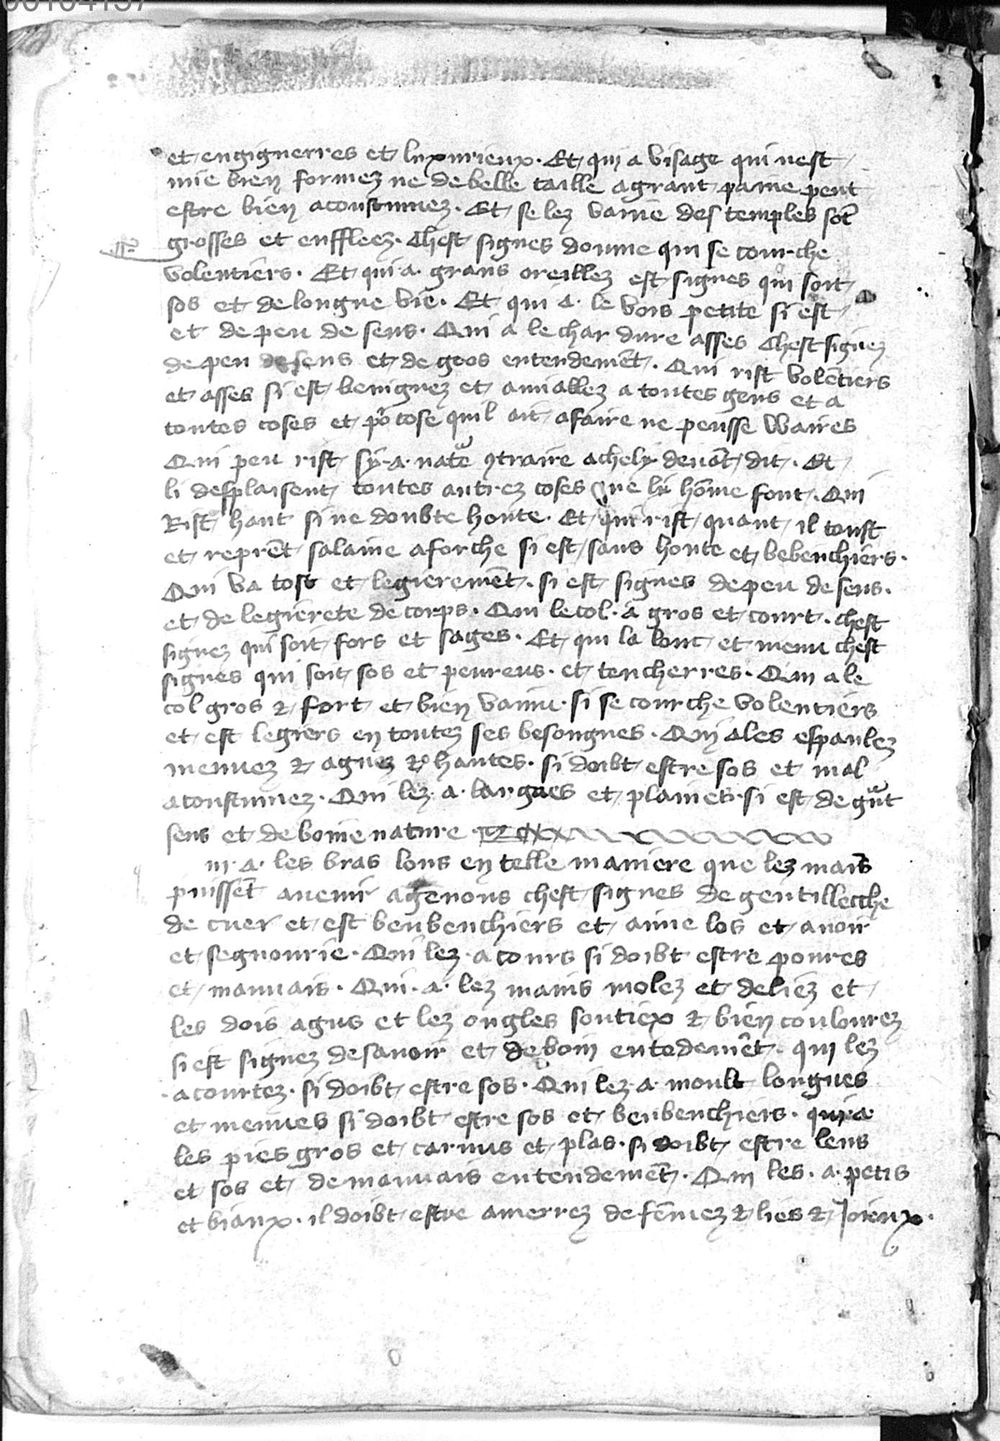 et engignerres et luxurieux. Et qui a visage qui nest
mie bien formez ne de belle taille a grant paine peut
estre bien acoustumez. Et se lez vaine des temples sōt
grosses et enffleez. Chest signes donme qui se courche
volentiers. Et qui a. grans oreillez est signes qui soit
sos et de longue vie. Et qui a. le vois petite si est
et de peu de sens. Qui a le char dure asses chest signez
de peu de sens et de gros entendemēt. Qui rist volētiers
et asses si est benignez et amiablez a toutes gens et a
toutes coses et po᷑ cose quil ait a faire ne pensse waires
Qui peu rist sy. a. nat᷑e ꝯtraire a chely devāt dit. Et
li desplaisent toutes autrez coses que li hōme font. Qui
Rist haut si ne doubte honte. Et qui rist quant il toust
et reprēt salaine a forche si est sans honte et bebenchiers.
Qui va tost et legierement. si est signes de peu de sens.
et de legierete de corps. Qui le col. a gros et court. chest
signez qui soit fors et sages. Et qui la lonc et menu chest
signes qui soit sos et peureus. et tencherres. Qui a le
col gros ⁊ fort et bien vainu. si se courche volentiers
et est legiers en toutez ses besongnes. Qui a les espaulez
menuez ⁊ aguez ⁊ hautes. si doibt estre sos et mal
acoustumez. Qui lez. a. largues et plaines. si est de gāt
sens et de bonne nature.
ui. a. les bras lons en telle maniere que lez mais
puissēt avenir a genous chest signes de gentillecche
de cuer et est beubenchiers et aime los et avoir
et segnourie. Qui lez. a cours si doibt estre poures
et mauvais. Qui. a. lez mains molez et deliez et
les dois agus et lez ongles soutiex ⁊ bien coulourez
si est signez de savoir et de boin entēdemēt. qui lez
a courtez. si doibt estre sos. Qui lez. a. moult longues
et menues si doibt estre sos et beubenchiers. qui a
les pies gros et carnus et plas. si doibt estre lens
et sos et de mauvais entendemēt. Qui les. a. petis
et biaux. il doibt estre amerrez de fēmez ⁊ lies ⁊ Joieux.